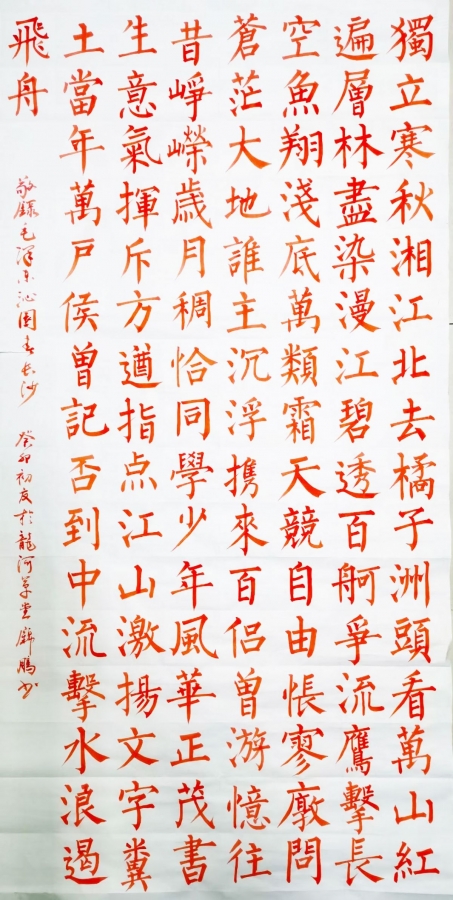 獨立寒秋湘江北去橘子洲頭看萬山紅
遍層林盡染漫江碧透百舸爭流鷹擊長
空魚翔淺底萬類霜天競自由悵寥廓問
蒼茫大地誰主沉浮携來百侶曾游憶往
昔崢嶸歲月稠恰同學少年風華正茂書
生意氣揮斥方遒指点江山激揚文字糞
土當年萬戶侯曾記否到中流擊水浪遏
飛舟
敬錄毛澤東沁園春長沙 癸卯初夏於龍河草堂錦鵬書